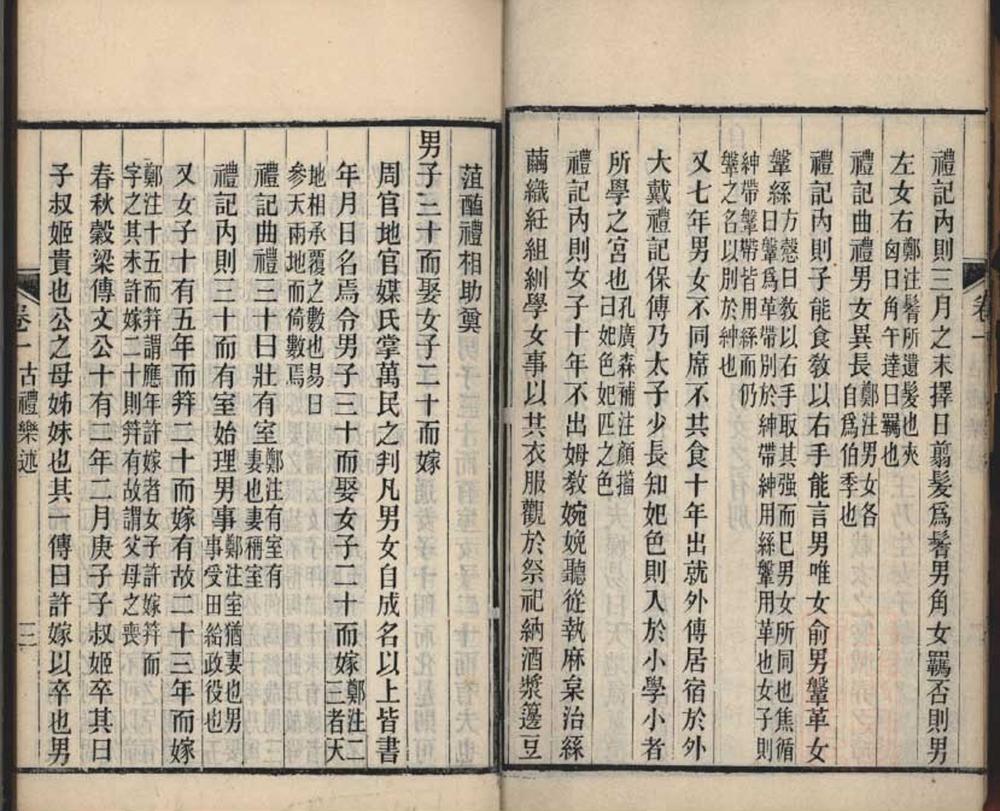 禮記內則三月之末擇日翦髮爲鬌男角女羈否則男
左女右鄭注鬌所遺髮也夾
囟曰角午達曰羈也
禮記曲禮男女異長鄭注男女各
自爲伯季也
禮記內則子能食敎以右手能言男唯女俞男鞶革女
鞶絲方慤曰敎以右手取其强而已男女所同也焦循
曰鞶爲革帶別於紳帶紳用絲鞶用革也女子則
紳帶鞶帶皆用絲而仍
鞶之名以別於紳也
又七年男女不同席不共食十年出就外傅居宿於外
大戴禮記保傅乃太子少長知妃色則入於小學小者
所學之宮也孔廣森補注顏
曰妃色妃匹之色
禮記內則女子十年不出姆敎婉娩聽從執麻枲治絲
繭織紝組紃學女事以共衣服觀於祭祀納酒漿籩豆
卷一
菹醢禮相助奠
男子三十而娶女子二十而嫁
周官地官媒氏掌萬民之判凡男女自成名以上皆書
年月日名焉令男子三十而娶女子二十而嫁鄭注二
三者天
地相承覆之數也易曰
參天兩地而倚數焉
禮記曲禮三十曰壯有室鄭注有室有
妻也妻稱室
禮記內則三十而有室始理男事鄭注室猶妻也男
事受田給政役也
又女子十有五年而筓二十而嫁有故二十三年而嫁
鄭注十五而筓謂應年許嫁者女子許嫁筓而
字之其未許嫁二十則筓有故謂父母之喪
春秋穀梁傳文公十有二年二月庚子子叔姬卒其曰
子叔姬貴也公之母姊妹也其傳曰許嫁以卒也男
卷一古禮樂述
三